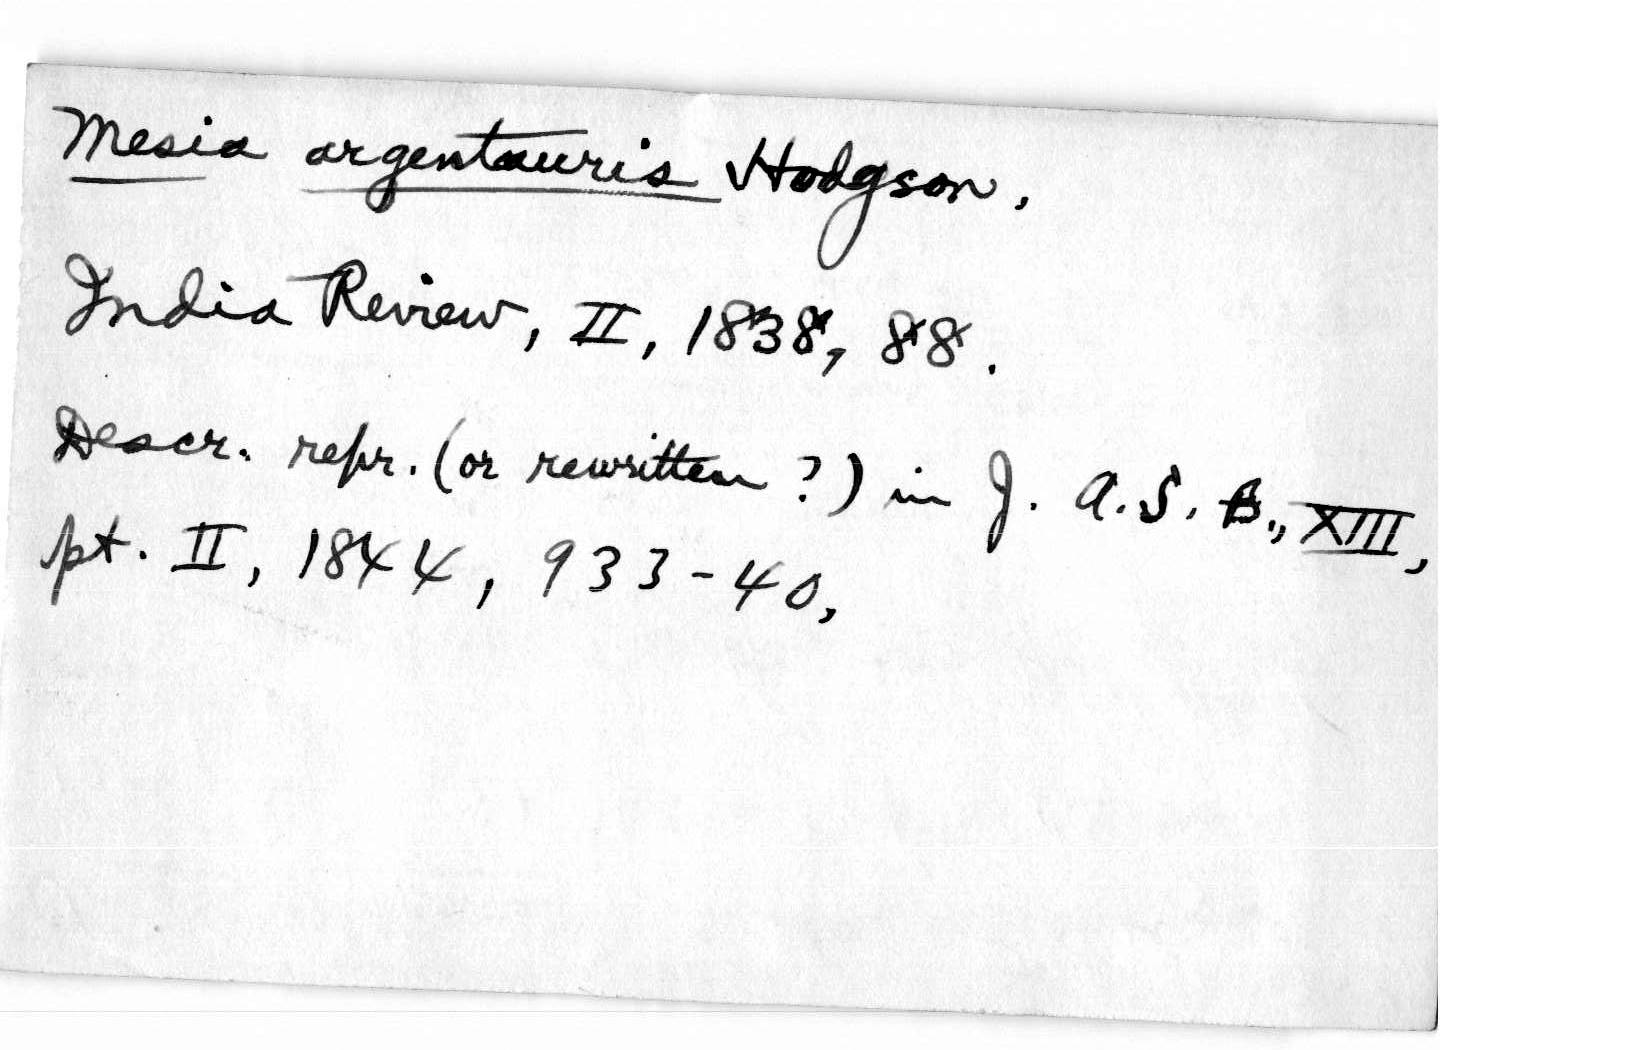 Mesia argentauris Hodgson,
India Review, II, 1838, 88.
Descr. repr. (or rewritten ?) in J. A. S. B., XIII,
pt. II, 1844, 933-40,